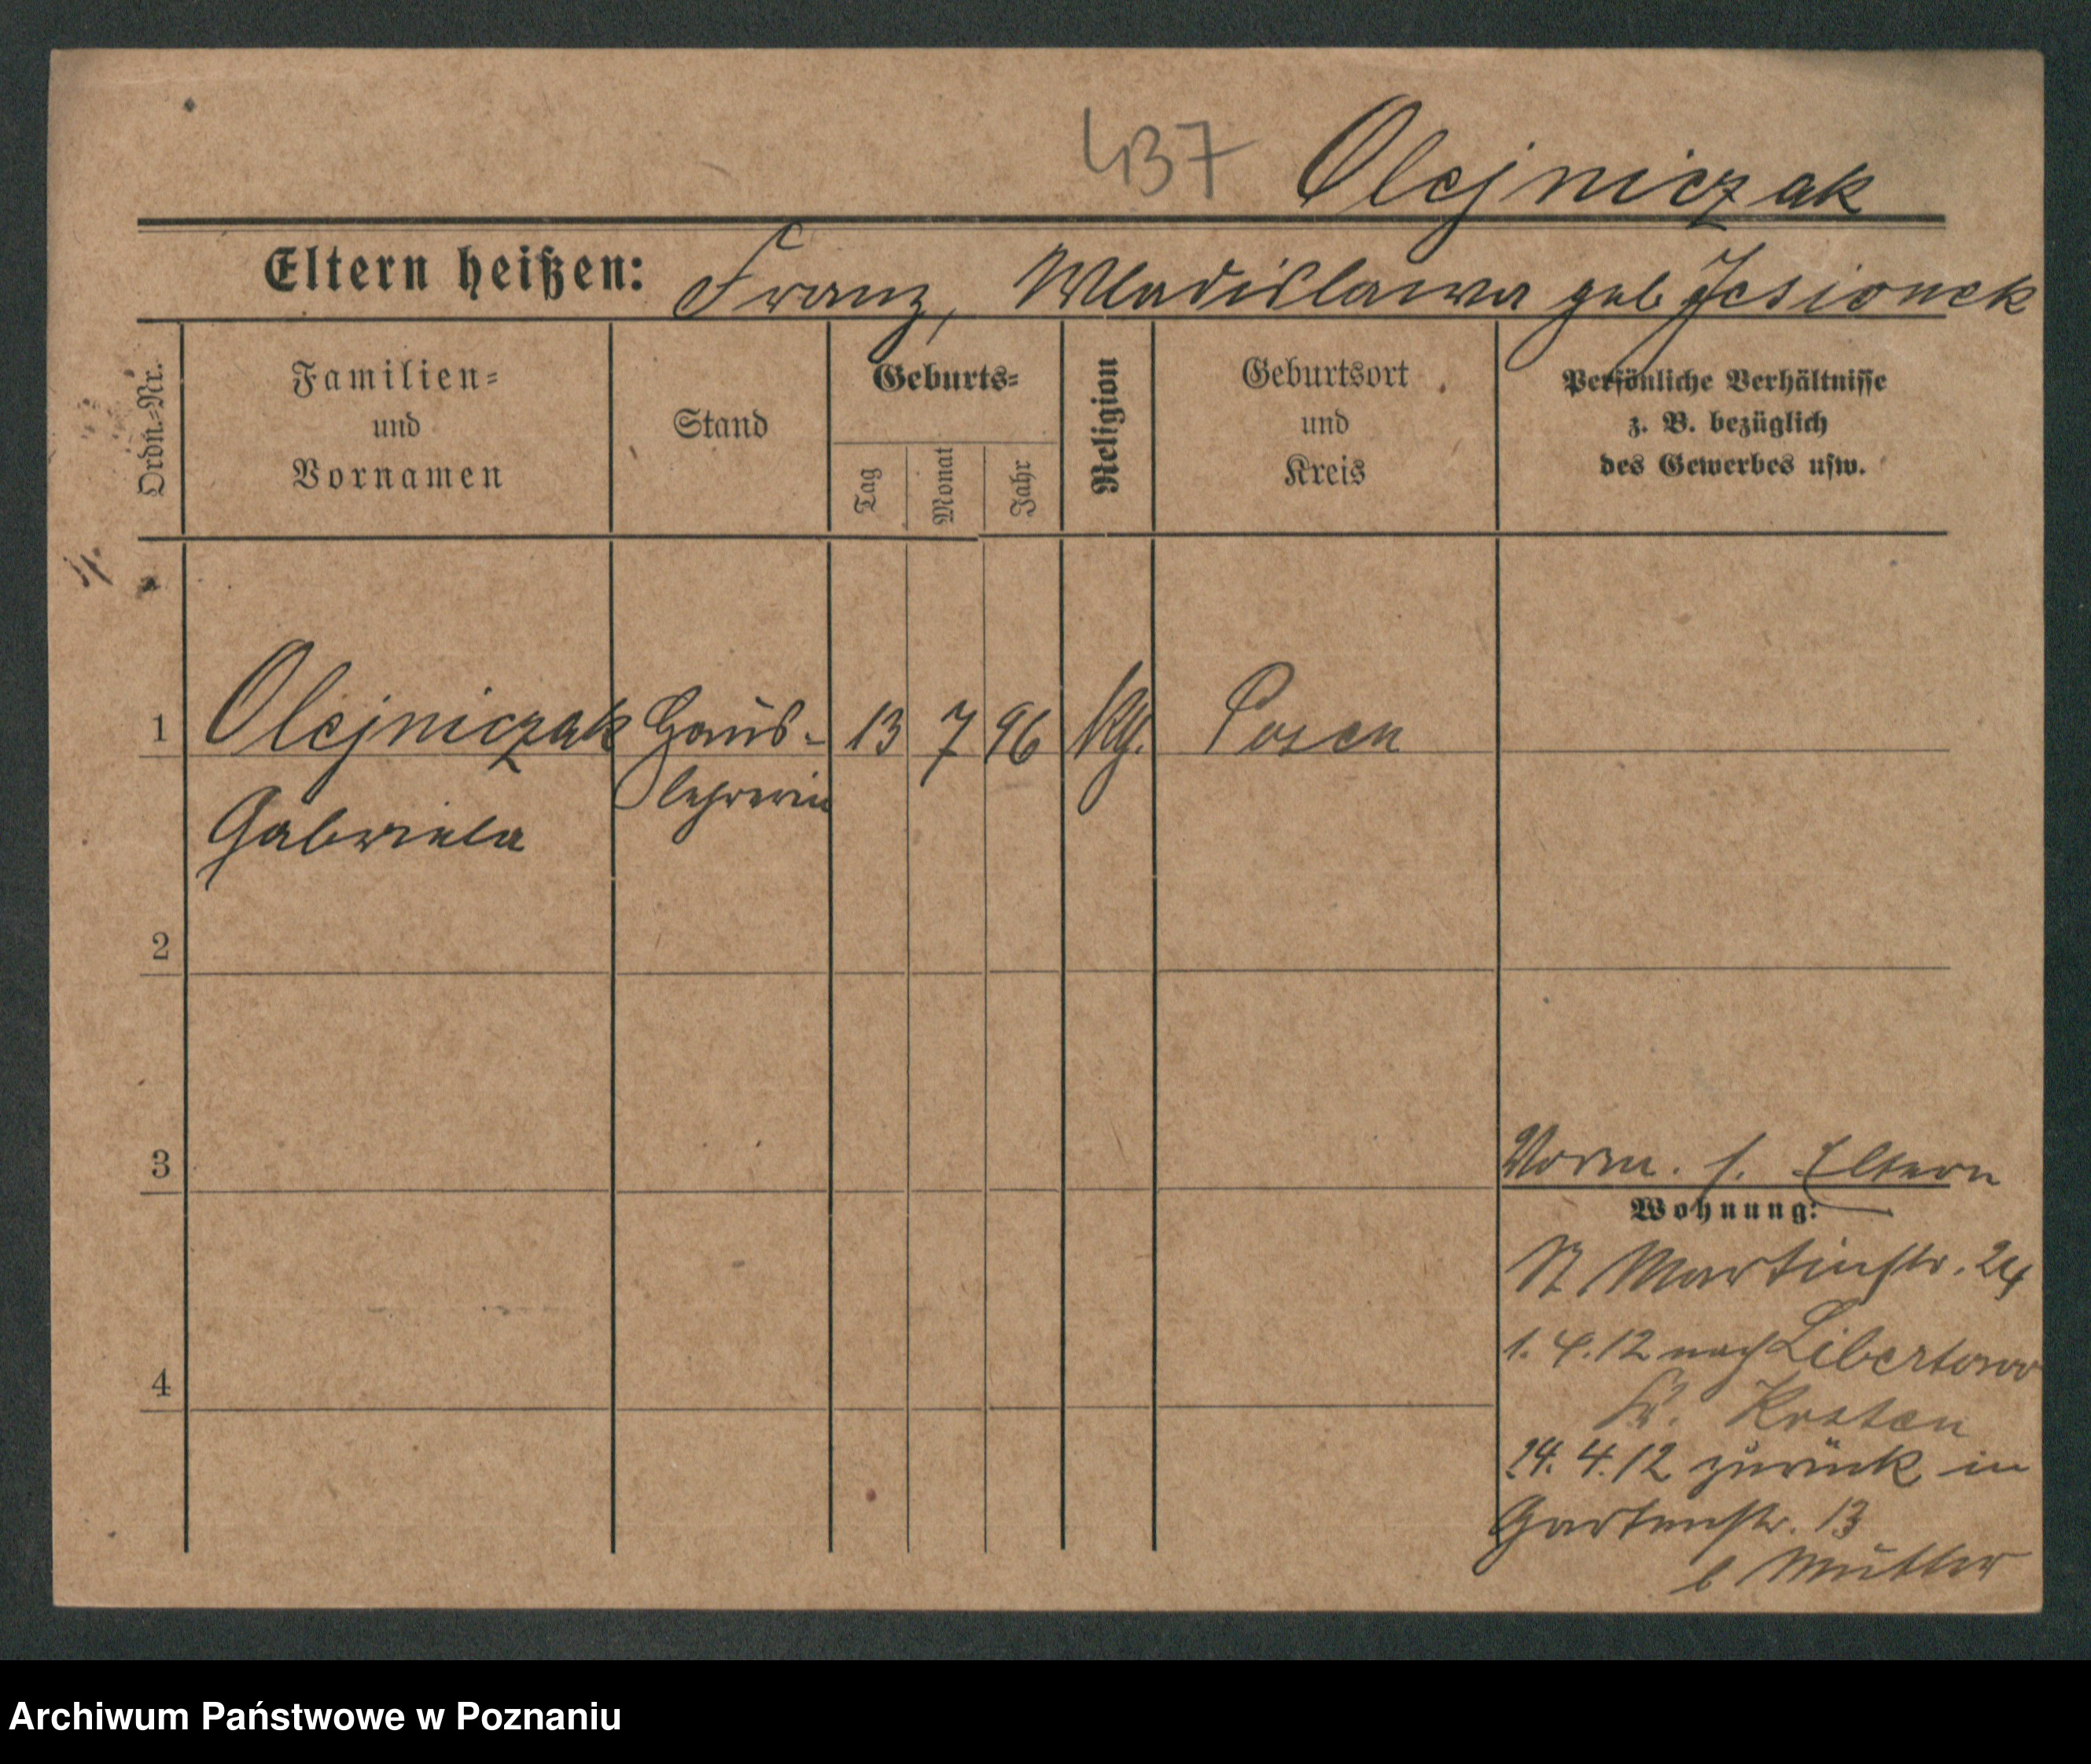 437 Olejniczak
Eltern heißen: Franz, Wladislawa geb Jesionek
Ordn.=Nr.
Familien=
und
Vornamen
Stand
Geburts=
Tag
Monat
Jahr
Religion
Geburtsort
und
Kreis
Persönliche Verhältnisse
z. B. bezüglich
des Gewerbes usw.
1 Olejniczak Haus- 13 7 96 Posen
lehrerin
Gabriela
2
3
Vorm. s. Eltern
Wohnung:
St Martinstr. 24
1. 4. 12 nach Libertowo
Kr. Kosten
4
24. 4. 12 zurück in
Gartenstr. 13
b Mutter
Archiwum Państwowe w Poznaniu